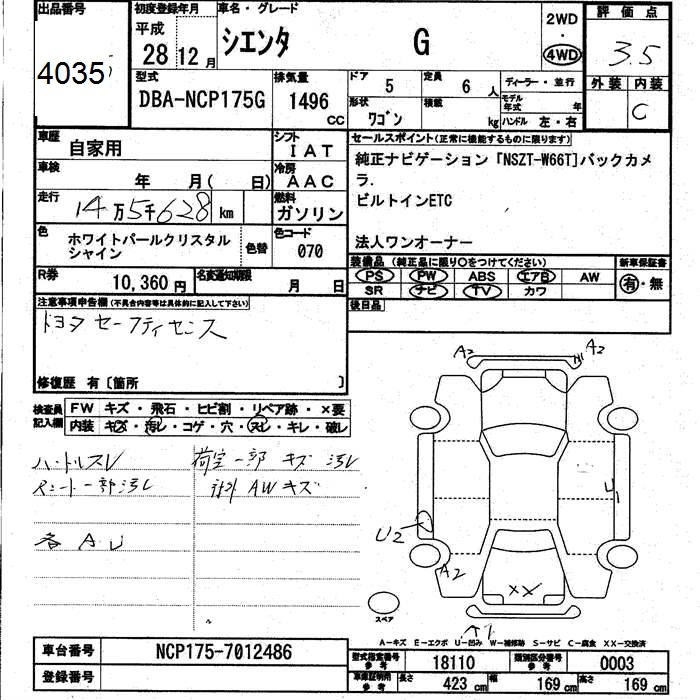 出品番号
4035
初度登録年月
平成
28年12月
車名・グレード
シエンタ G
2WD
・
4WD
評価点
3.5
外装 内装
C
型式
DBA-NCP175G
排気量
1496 CC
ドア 5
定員 6 人
ディーラー・並行
形状 ワゴン
積載 kg
モデル年式 年
ハンドル 左・右
車歴
自家用
シフト
IAT
車検
年 月( 日)
冷房
AAC
走行
14万5千628 km
燃料
ガソリン
色
ホワイトパールクリスタル
シャイン
色替
色コード
070
R券
10,360円
名変通知期限
月 日
セールスポイント(正常に機能するものに限ります)
純正ナビゲーション「NSZT-W66T]バックカメ
ラ.
ビルトインETC
法人ワンオーナー
装備品(純正品に限り○をつけてください)
新車保証書
PS PW ABS エアB AW
有・無
SR ナビ TV カワ
後日品
注意事項申告欄(不具合内容等は具体的に記入して下さい)
トヨタセーフティセンス
修復歴 有〔箇所 〕
検査員
記入欄
FW キズ・飛石・ヒビ割・リペア跡・×要
内装 キズ・汚レ・コゲ・穴・スレ・キレ・破レ
ハンドルスレ
シート一部汚レ
各 A.U
荷室一部 キズ 汚レ
AWキズ
A2
A2
U1
U2
A2
XX
A1
スペア
A-キズ E-エクボ U-凹み W-補修跡 S-サビ C-腐食 XX-交換済
車台番号
NCP175-7012486
登録番号
型式指定番号
参考
18110
類別区分番号
参考
0003
車庫証明用
参考
長さ 423 cm
幅 169 cm
高さ 169 cm